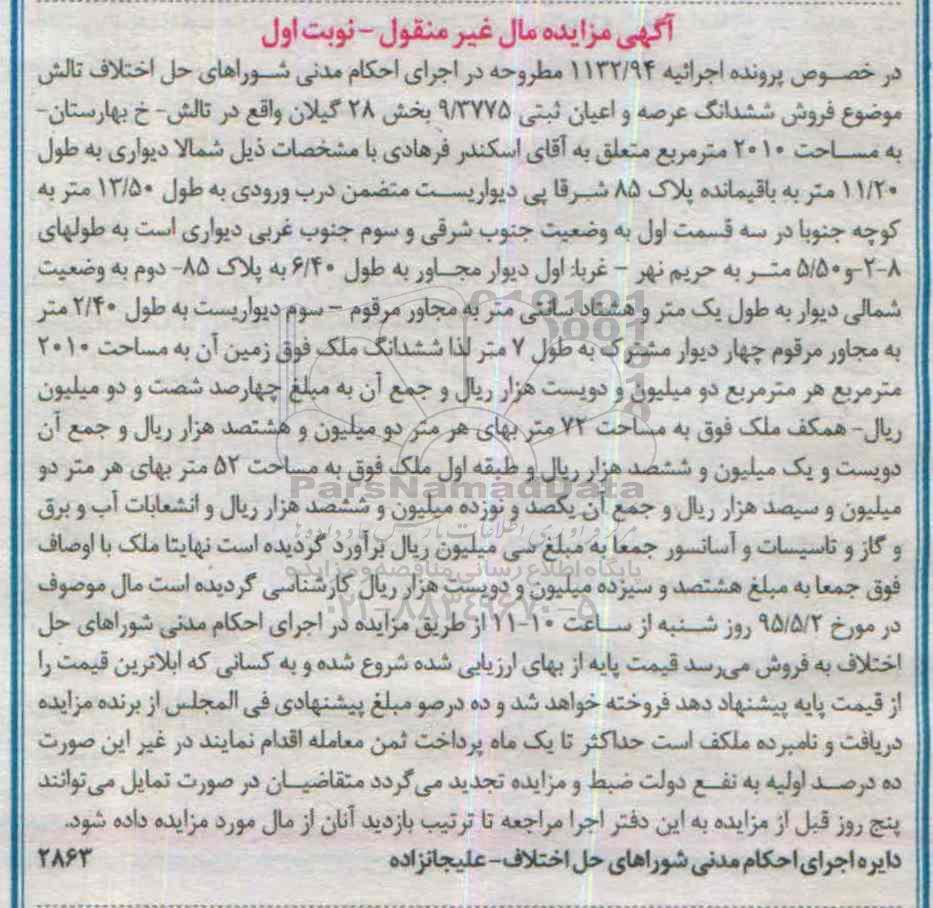 آگهی مزایده مال غیر منقول - نوبت اول
در خصوص پرونده اجرائیه ۱۱۳۲/۹۴ مطروحه در اجرای احکام مدنی شوراهای حل اختلاف تالش
موضوع فروش ششدانگ عرصه و اعیان ثبتی ۹/۳۷۷۵ بخش ۲۸ گیلان واقع در تالش- خ بهارستان-
به مساحت ۲۰۱۰ مترمربع متعلق به آقای اسکندر فرهادی با مشخصات ذیل شمالا دیواری به طول
۱۱/۲۰ متر به باقیمانده پلاک ۸۵ شرقا پی دیواریست متضمن درب ورودی به طول ۱۳/۵۰ متر به
کوچه جنوبا در سه قسمت اول به وضعیت جنوب شرقی و سوم جنوب غربی دیواری است به طولهای
۸-۲-و۵/۵۰ متر به حریم نهر - غربا: اول دیوار مجاور به طول ۶/۴۰ به پلاک ۸۵- دوم به وضعیت
شمالی دیوار به طول یک متر و هشتاد سانتی متر به مجاور مرقوم - سوم دیواریست به طول ۲/۴۰ متر
به مجاور مرقوم چهار دیوار مشترک به طول ۷ متر لذا ششدانگ ملک فوق زمین آن به مساحت ۲۰۱۰
مترمربع هر مترمربع دو میلیون و دویست هزار ریال و جمع آن به مبلغ چهارصد شصت و دو میلیون
ریال- همکف ملک فوق به مساحت ۷۲ متر بهای هر متر دو میلیون و هشتصد هزار ریال و جمع آن
دویست و یک میلیون و ششصد هزار ریال و طبقه اول ملک فوق به مساحت ۵۲ متر بهای هر متر دو
ParsNamadData
میلیون و سیصد هزار ریال و جمع آن یکصد و نوزده میلیون و ششصد هزار ریال و انشعابات آب و برق
و گاز و تاسیسات و آسانسور جمعا به مبلغ سی میلیون ریال برآورد گردیده است نهایتا ملک با اوصاف
پایگاه اطلاع رسانی مناقصه و مزایده
فوق جمعا به مبلغ هشتصد و سیزده میلیون و دویست هزار ریال کارشناسی گردیده است مال موصوف
۰۲۱-۸۸۳۴۹۶۷۰-۵
در مورخ ۹۵/۵/۲ روز شنبه از ساعت ۱۰-۱۱ از طریق مزایده در اجرای احکام مدنی شوراهای حل
اختلاف به فروش می‌رسد قیمت پایه از بهای ارزیابی شده شروع شده و به کسانی که ابلاترین قیمت را
از قیمت پایه پیشنهاد دهد فروخته خواهد شد و ده درصو مبلغ پیشنهادی فی المجلس از برنده مزایده
دریافت و نامبرده ملکف است حداکثر تا یک ماه پرداخت ثمن معامله اقدام نمایند در غیر این صورت
ده درصد اولیه به نفع دولت ضبط و مزایده تجدید می‌گردد متقاضیان در صورت تمایل می‌توانند
پنج روز قبل از مزایده به این دفتر اجرا مراجعه تا ترتیب بازدید آنان از مال مورد مزایده داده شود.
دایره اجرای احکام مدنی شوراهای حل اختلاف- علیجانزاده ۲۸۶۳